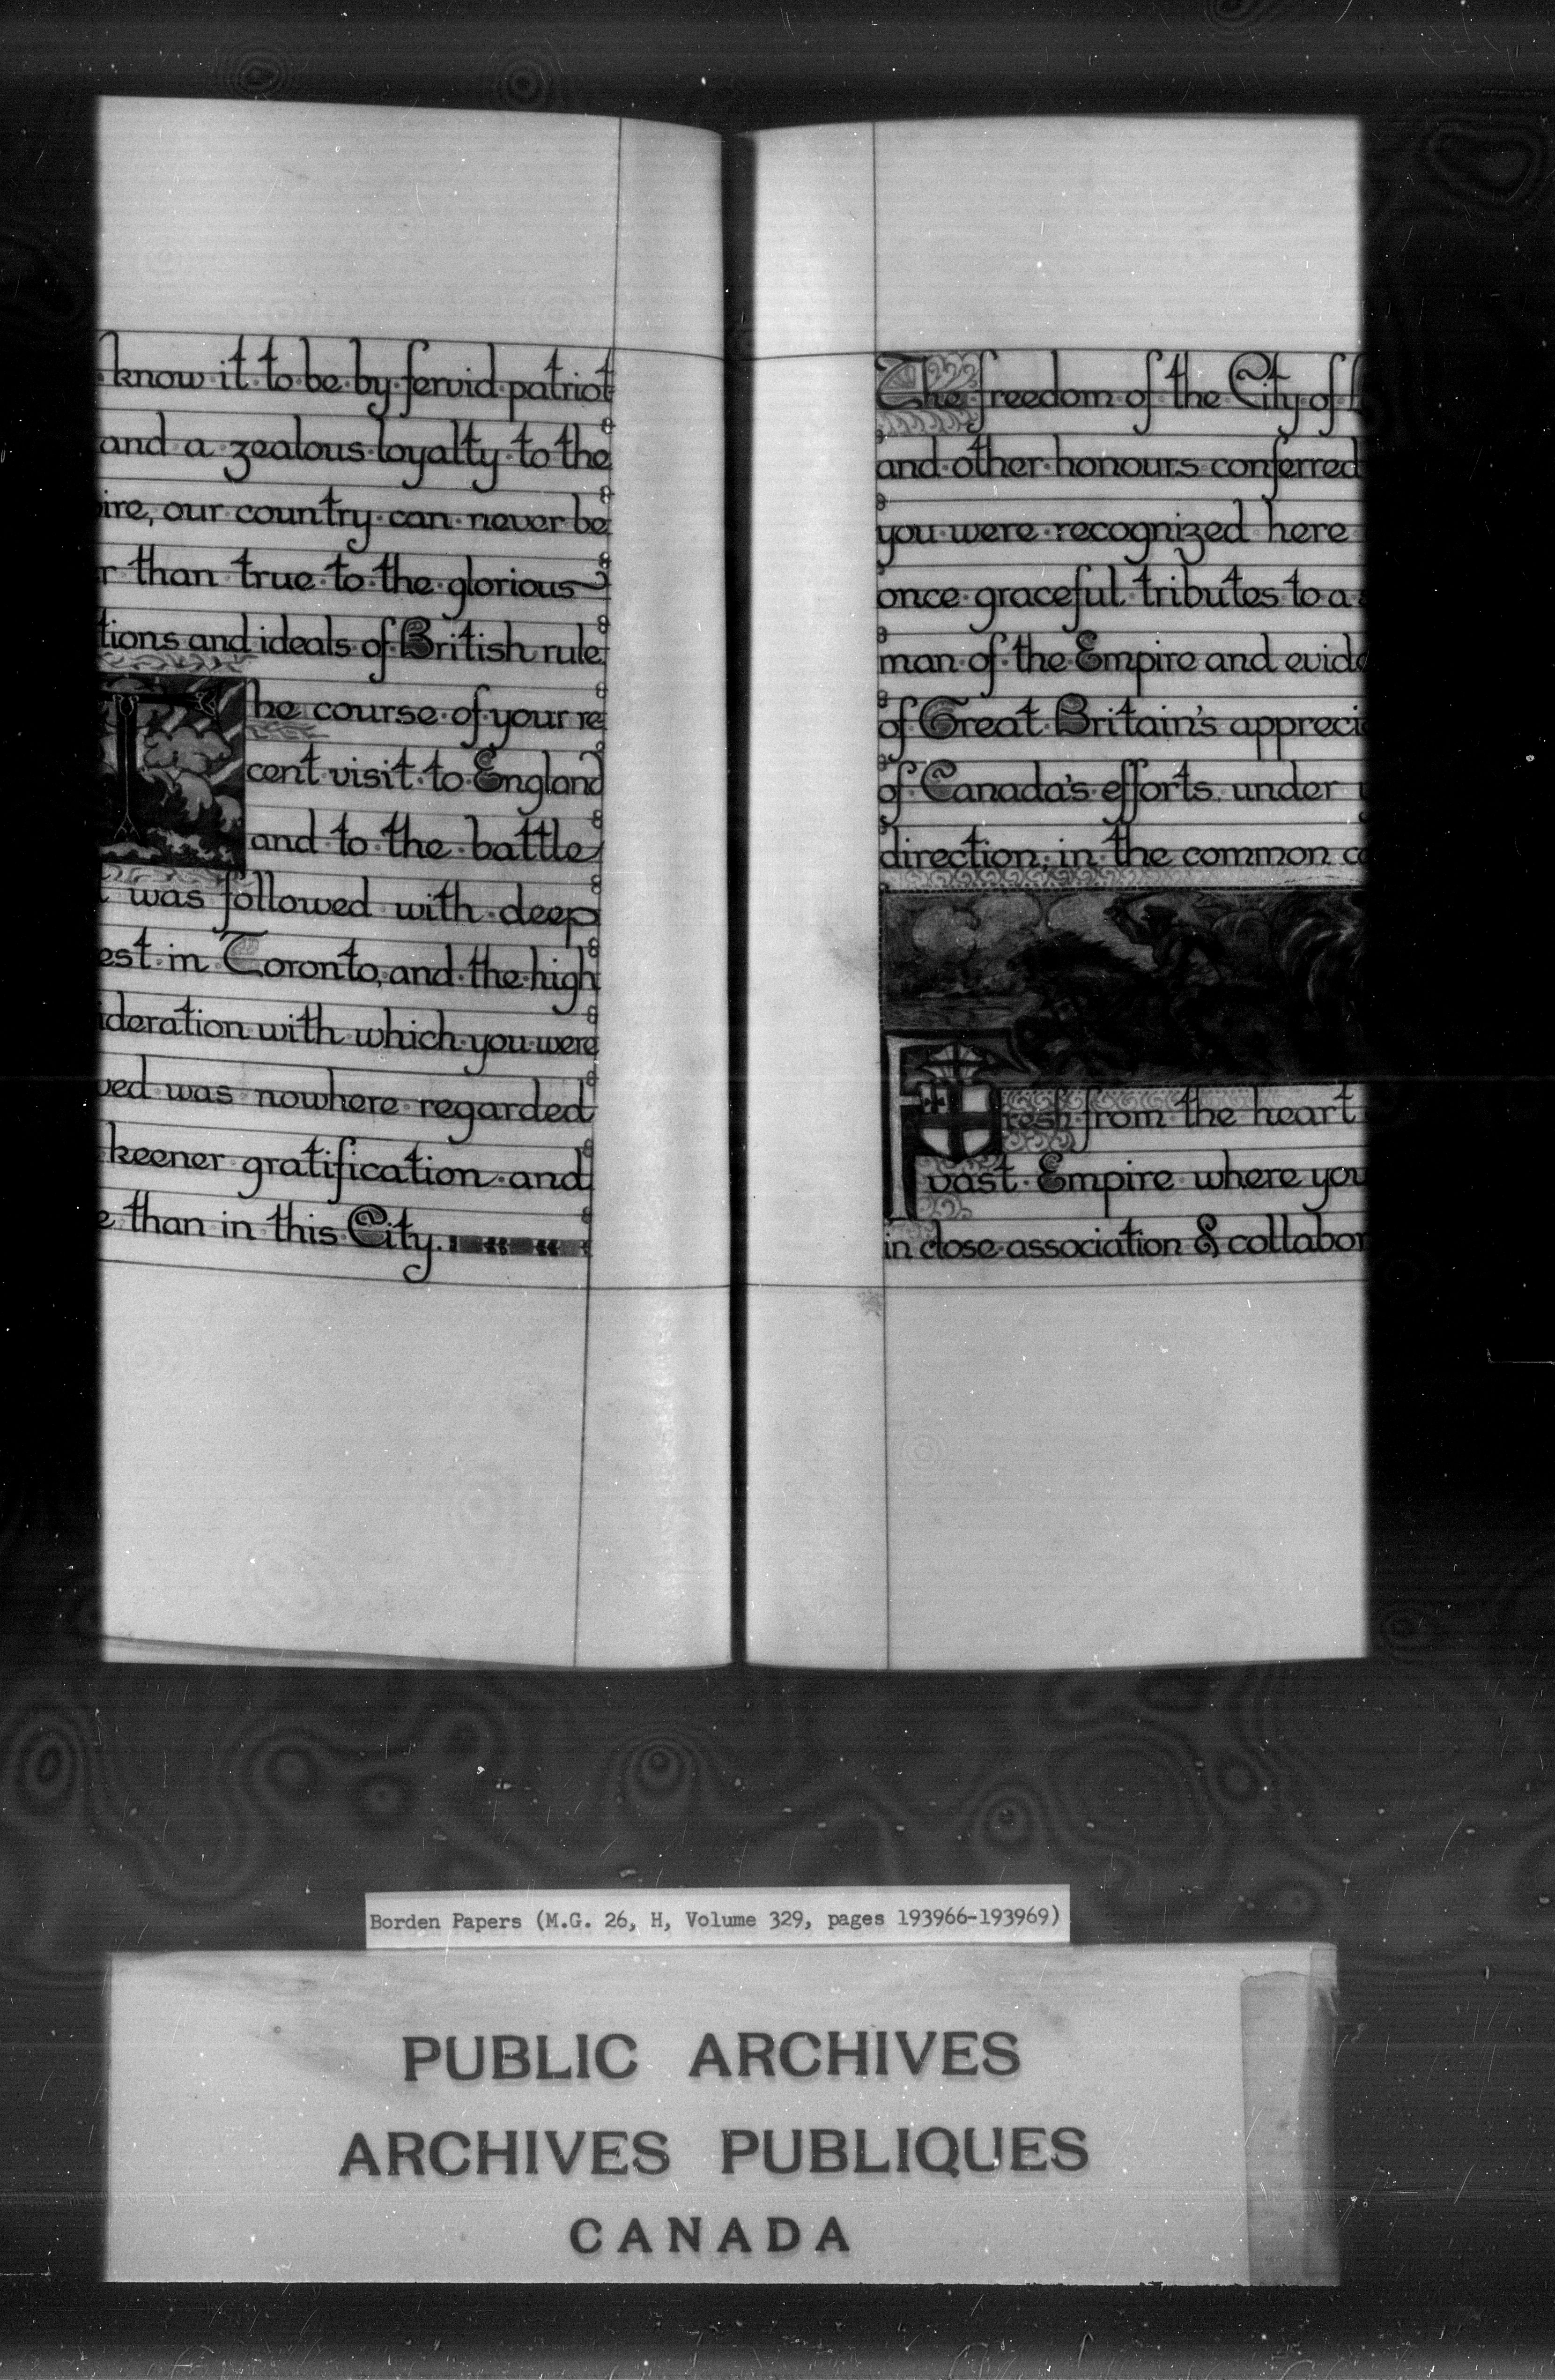 know it to be by fervid patriot
and a zealous loyalty to the
ire, our country can never be
r than true to the glorious
tions and ideals of British rule
The course of your re
cent visit to England
and to the battle
t was followed with deep
est in Toronto, and the high
ideration with which you were
ved was nowhere regarded
keener gratification and
e than in this City.
The freedom of the City of L
and other honours conferred
you were recognized here
once graceful tributes to a
man of the Empire and evide
of Great Britain's appreci
of Canada's efforts under y
direction, in the common c
Fresh from the heart
vast Empire where you
in close association & collabor
Borden Papers (M.G. 26, H, Volume 329, pages 193966-193969)
PUBLIC ARCHIVES
ARCHIVES PUBLIQUES
CANADA